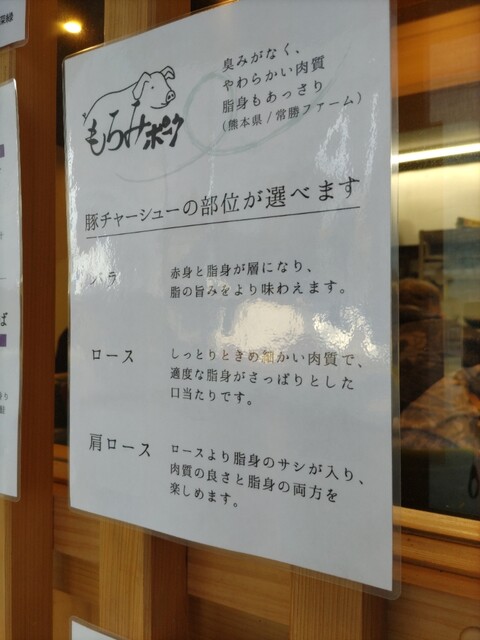 もろみポーク
臭みがなく、
やわらかい肉質
脂身もあっさり
(熊本県/常勝ファーム)
豚チャーシューの部位が選べます
バラ
赤身と脂身が層になり、
脂の旨みをより味わえます。
ロース
しっとりときめ細かい肉質で、
適度な脂身がさっぱりとした
口当たりです。
肩ロース
ロースより脂身のサシが入り、
肉質の良さと脂身の両方を
楽しめます。